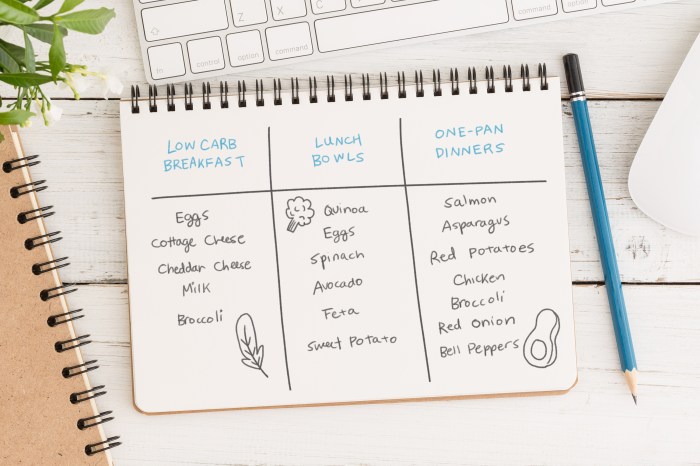 Z
X
C
V
B
N
M
fn
control
option
command
command
option
LOW CARB
BREAKFAST
Eggs
Cottage Cheese
Cheddar Cheese
Milk
Broccoli
LUNCH
BOWLS
Quinoa
Eggs
Spinach
Avocado
Feta
Sweet Potato
ONE-PAN
DINNERS
Salmon
Asparagus
Red Potatoes
Chicken
Broccoli
Red Onion
Bell Peppers